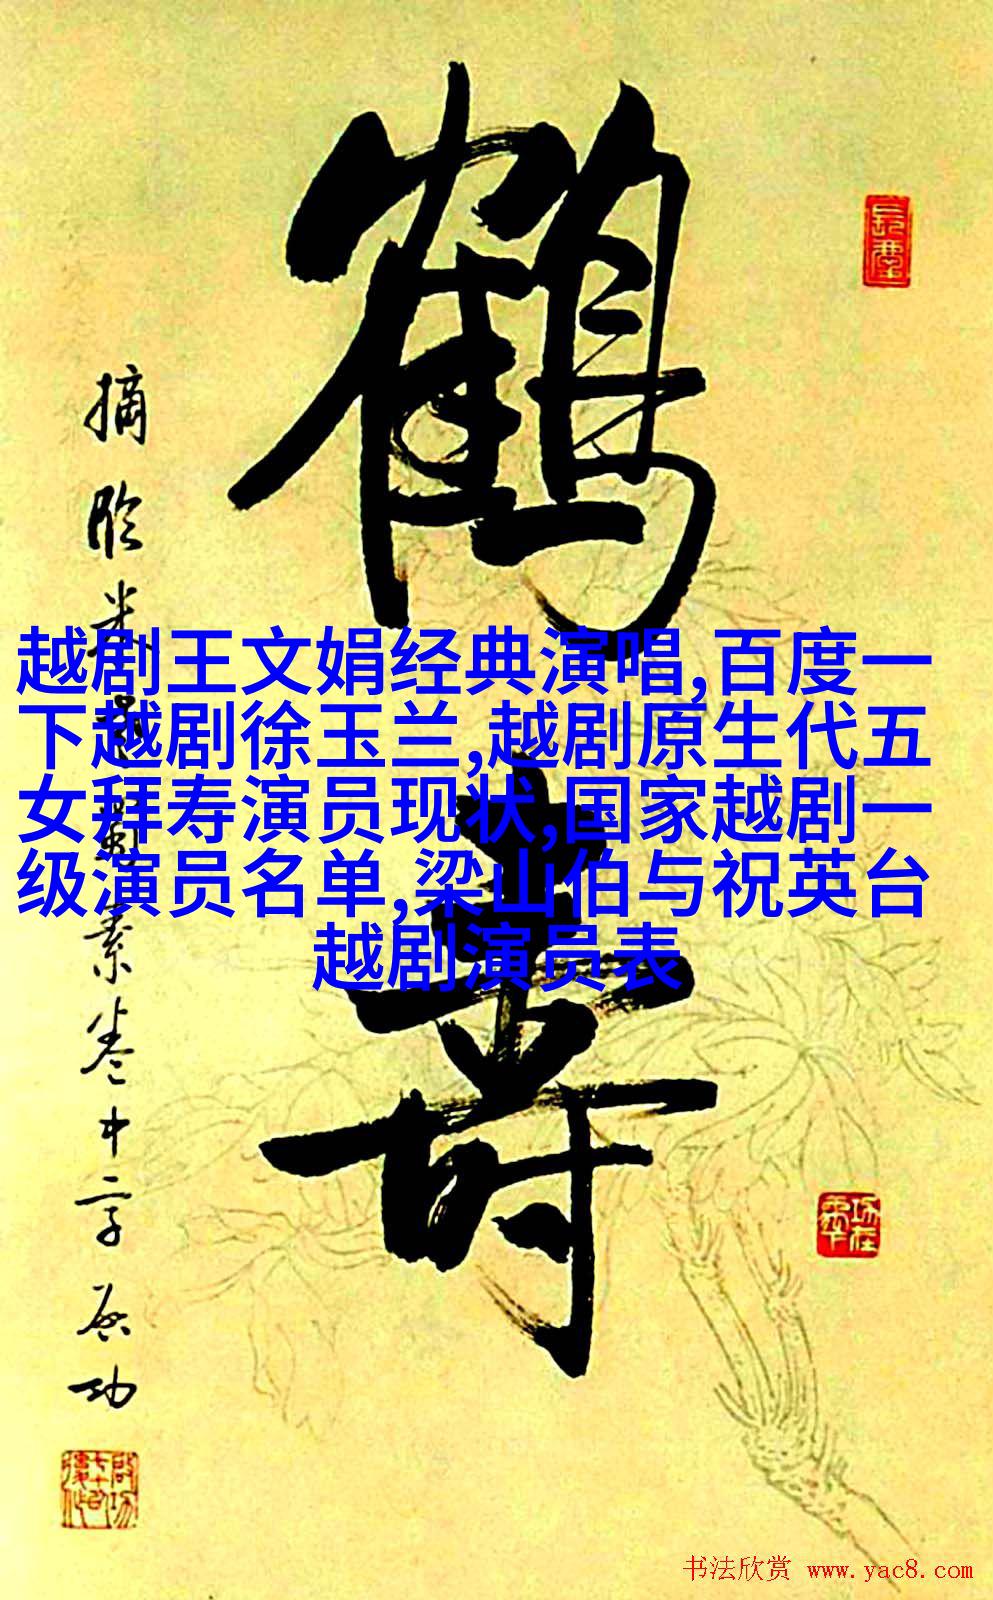 鹤寿
摘临米书蜀素卷中字 启功
越剧王文娟经典演唱,百度一
下越剧徐玉兰,越剧原生代五
女拜寿演员现状,国家越剧一
级演员名单,梁山伯与祝英台
越剧演员表
书法欣赏 www.yac8.com